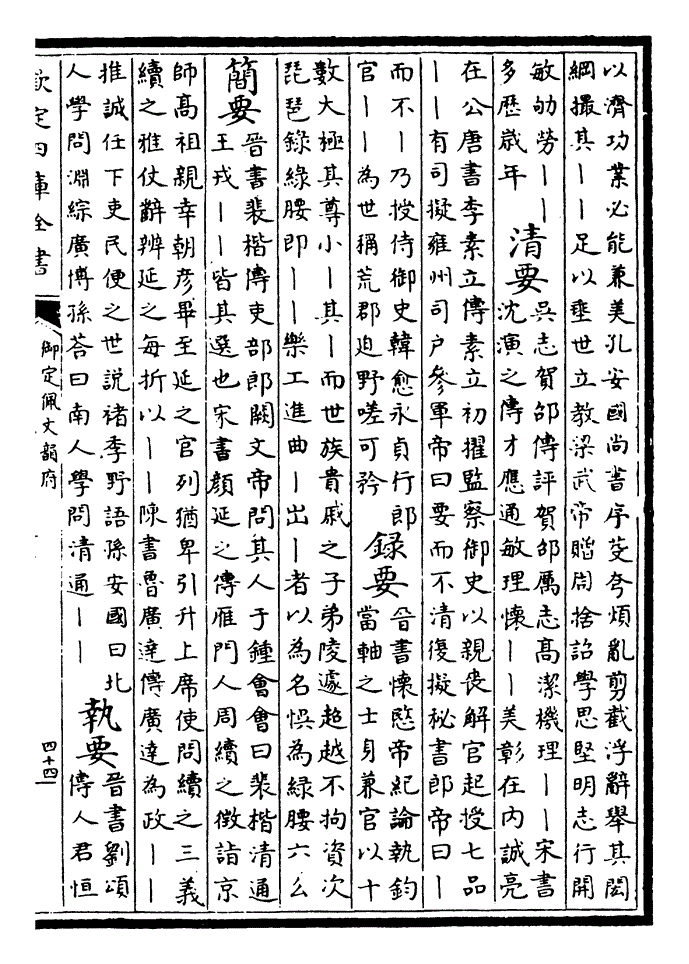 以濟功業必能兼美孔安國尚書序芟夸煩亂剪截浮辭舉其閎
綱撮其——足以垂世立教梁武帝贈周捨詔學思堅明志行開
敏劬勞——
多歷歲年
清要
吳志賀邵傳評賀邵厲志高潔機理——宋書
沈演之傳才應通敏理懷——美彰在内誠亮
在公唐書李素立傳素立初擢監察御史以親喪解官起授七品
——有司擬雍州司户參軍帝曰要而不清復擬秘書郎帝曰—
而不—乃授侍御史韓愈永貞行郎
官——為世稱荒郡迫野嗟可矜
録要
晉書懷愍帝紀論執鈞
當軸之士身兼官以十
數大極其尊小—其—而世族貴戚之子弟陵邁超越不拘資次
琵琶錄綠腰即——樂工進曲—出—者以為名悞為緑腰六么
簡要
晉書裴楷傳吏部郎闕文帝問其人于鍾會會曰裴楷清通
王戎——皆其選也宋書顔延之傳雁門人周續之徵詣京
師高祖親幸朝彦畢至延之官列猶卑引升上席使問續之三義
續之雅仗辭辨延之每折以——陳書魯廣達傳廣達為政——
推誠任下吏民便之世説褚季野語孫安國曰北
人學問淵綜廣博孫荅曰南人學問清通——
執要
晉書劉頌
傳人君恒
欽定四庫全書
御定佩文韻府
四十四